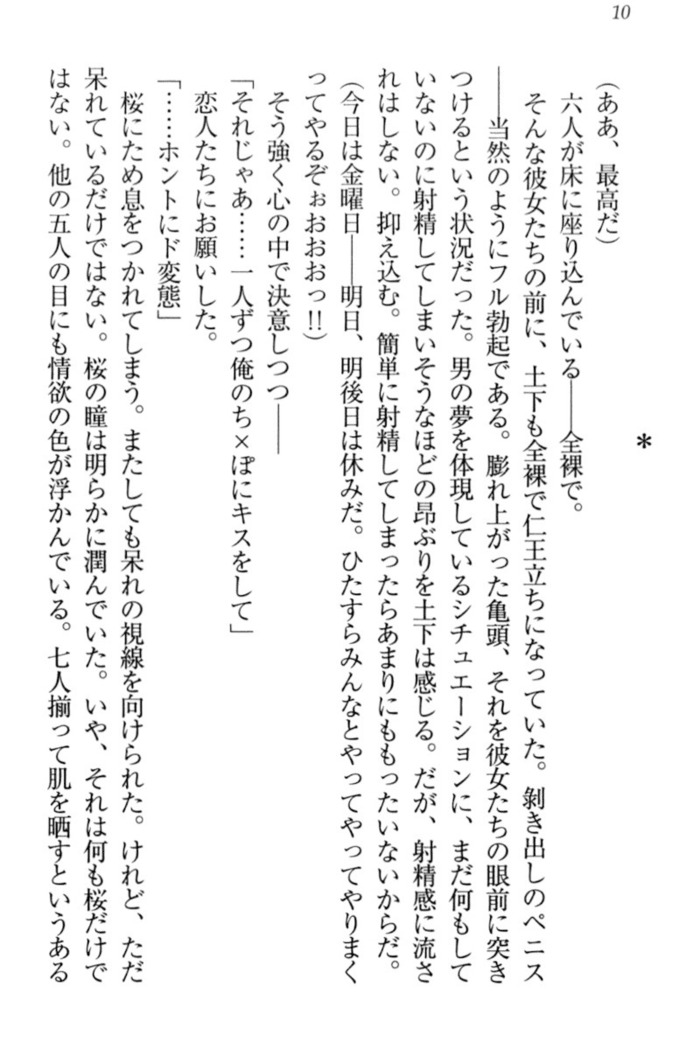 10
*
(ああ、最高だ)
六人が床に座り込んでいる――全裸で。
そんな彼女たちの前に、土下も全裸で仁王立ちになっていた。剝き出しのペニス
――当然のようにフル勃起である。膨れ上がった亀頭、それを彼女たちの眼前に突き
つけるという状況だった。男の夢を体現しているシチュエーションに、まだ何もして
いないのに射精してしまいそうなほどの昂ぶりを土下は感じる。だが、射精感に流さ
れはしない。抑え込む。簡単に射精してしまったらあまりにももったいないからだ。
(今日は金曜日――明日、明後日は休みだ。ひたすらみんなとやってやってやりまく
ってやるぞぉおおおっ!!)
そう強く心の中で決意しつつ――
「それじゃあ……一人ずつ俺のち×ぽにキスをして」
恋人たちにお願いした。
「……ホントにド変態」
桜にため息をつかれてしまう。またしても呆れの視線を向けられた。けれど、ただ
呆れているだけではない。桜の瞳は明らかに潤んでいた。いや、それは何も桜だけで
はない。他の五人の目にも情欲の色が浮かんでいる。七人揃って肌を晒すというある